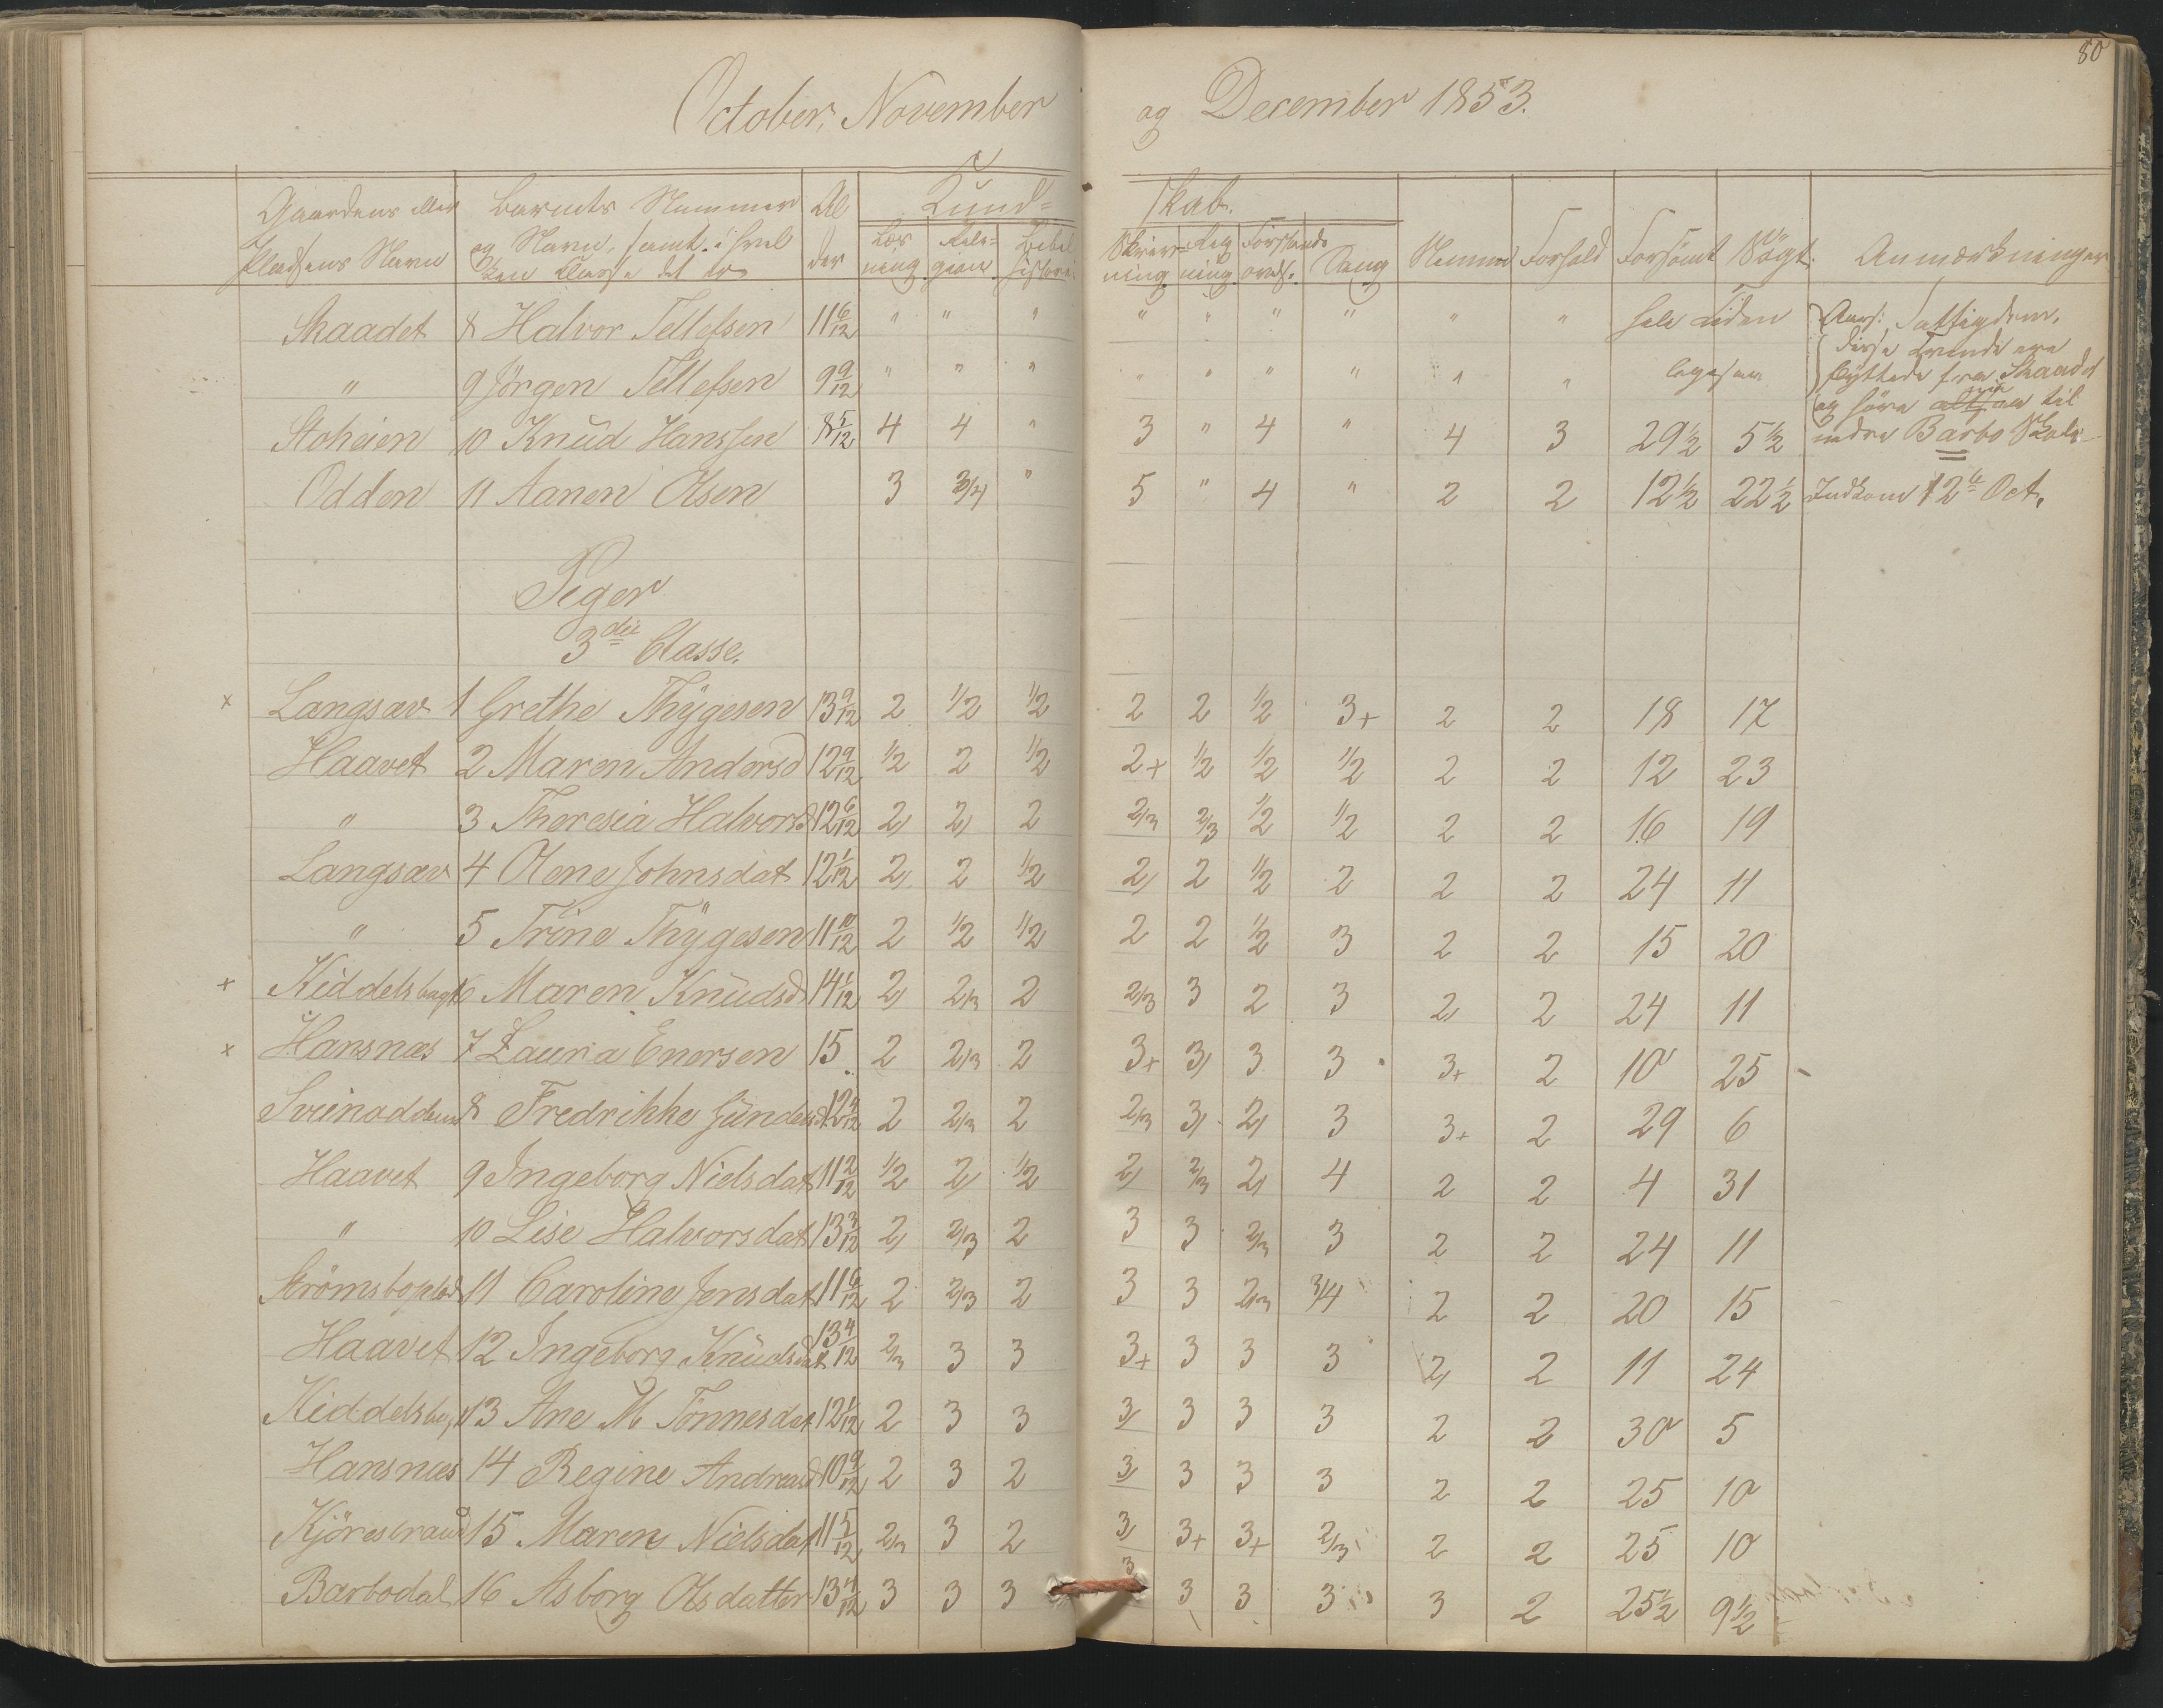 80
October, November og December 1853.
Gaardens eller Pladsens Navn | Barnets Nummer og Navn, samt i hvil ken Classe det er | Al der | Kund= skab.
Læs ning | Reli= gion | Bibel historie | Skriv= ning | Reg ning | Forstands øvels. | Sang | Nemme | Forhold | Forsömt | Sögt. | Anmærkninger
Skaadet 8 Halvor Tellefsen 11 6/12 " " " " " " " " " hele Tiden Aars: Fattigdom.
" 9 Jörgen Tellefsen 9 9/12 " " " " " " " " " ligesaa disse Trende ere flyttede fra Skaadet
Stoheien 10 Knud Hanssen 8 5/12 4 4 " 3 " 4 " 4 3 29 1/2 5 1/2 og høre nu til indre Barbo Skole
Odden 11 Aanen Olsen 3 3/4 " 5 " 4 " 2 2 12 1/2 22 1/2 Indkom 12te Oct.
Piger
3die Classe.
x Langsæv 1 Grethe Thÿgesen 13 9/12 2 1/2 1/2 2 2 1/2 3+ 2 2 18 17
Haavet 2 Maren Andersd 12 9/12 1/2 2 1/2 2+ 1/2 1/2 1/2 2 2 12 23
" 3 Theresia Halvorsd 12 6/12 2 2 2 2/3 2/3 1/2 1/2 2 2 16 19
Langsæv 4 Olene Johnsdat 12 1/12 2 2 1/2 2 2 1/2 2 2 2 24 11
" 5 Trine Thÿgesen 11 10/12 2 1/2 1/2 2 2 1/2 3 2 2 15 20
x Kiddelsbugt 6 Maren Knudsd 14 1/12 2 2/3 2 2/3 3 2 3 2 2 24 11
x Hansnæs 7 Laura Enersen 15 2 2/3 2 3+ 3 3 3 3+ 2 10 25
Svinodden 8 Fredrikke Gundersd 12 4/12 2 2/3 2 2/3 3 2 3 3+ 2 29 6
Haavet 9 Ingeborg Nielsdat 11 2/12 1/2 2 1/2 2 2/3 2 4 2 2 4 31
" 10 Lise Halvorsdat 13 3/12 2 2/3 2 3 3 2/3 3 2 2 24 11
11 Caroline Jensdat 11 6/12 2 2/3 2 3 3 2/3 3/4 2 2 20 15
Haavet 12 Ingeborg Knudsdat 13 4/12 2/3 3 3 3+ 3 3 3 2 2 11 24
Kiddelsbugt 13 Ane M Tönnesdat 12 1/12 2 3 3 3 3 3 3 2 2 30 5
Hansnæs 14 Regine Andreasd 10 9/12 2 3 2 3 3 3 3 2 2 25 10
Kjörestrand 15 Maren Nielsdat 11 5/12 2/3 3 2 3 3+ 3+ 2/3 2 2 25 10
Barbodal 16 Asborg Olsdatter 13 4/12 3 3 3 3 3 3 3 3 2 25 1/2 9 1/2